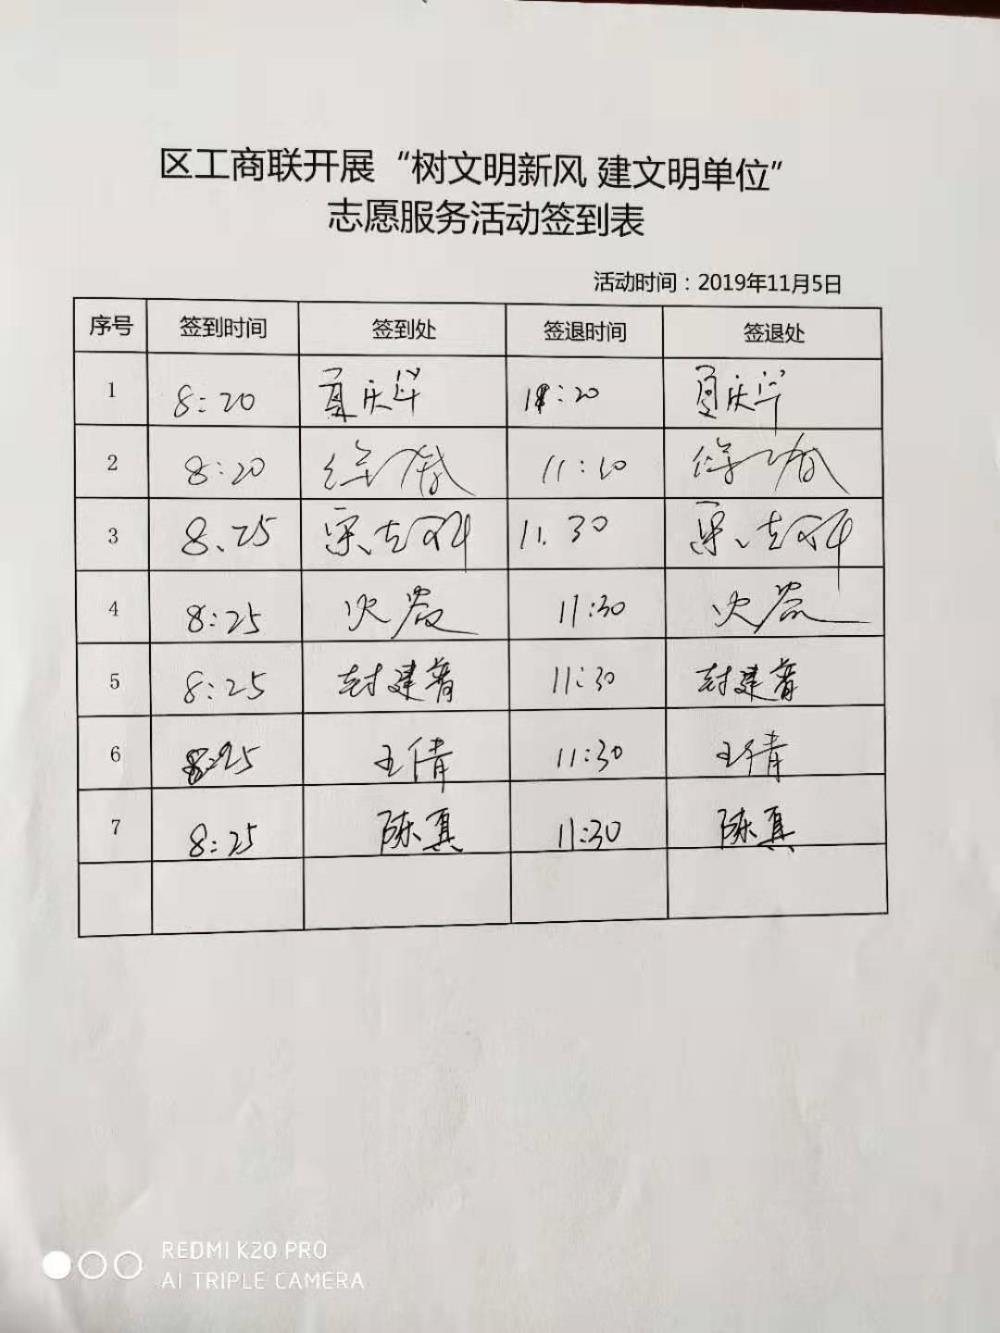 区工商联开展“树文明新风 建文明单位”
志愿服务活动签到表
活动时间：2019年11月5日
序号 签到时间 签到处 签退时间 签退处
1 8:20 夏庆华 11:20 夏庆华
2 8:20 11:10
3 8.25 11.30
4 8:25 11:30
5 8:25 封建普 11:30 封建普
6 8:25 王倩 11:30 王倩
7 8:25 陈真 11:30 陈真
REDMI K20 PRO
AI TRIPLE CAMERA